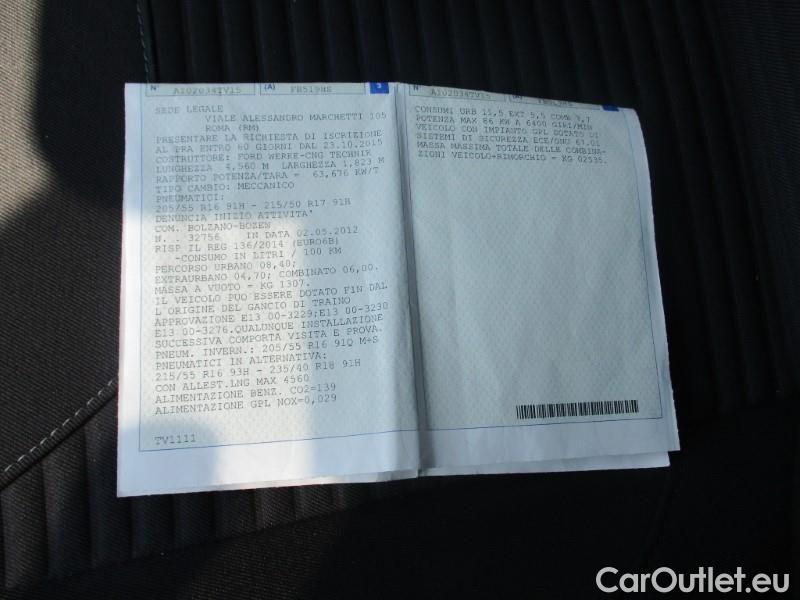 N° A102034TV15 (A) FB519HS 3
SEDE LEGALE
VIALE ALESSANDRO MARCHETTI 105
ROMA (RM)
PRESENTARE LA RICHIESTA DI ISCRIZIONE
AL PRA ENTRO 60 GIORNI DAL 23.10.2015
COSTRUTTORE: FORD WERKE-CNG TECHNIK
LUNGHEZZA 4,560 M LARGHEZZA 1,823 M
RAPPORTO POTENZA/TARA = 63,676 KW/T
TIPO CAMBIO: MECCANICO
PNEUMATICI:
205/55 R16 91H - 215/50 R17 91H
DENUNCIA INIZIO ATTIVITA'
COM. BOLZANO-BOZEN
N. . 32756 IN DATA 02.05.2012
RISP IL REG 136/2014 (EURO6B)
-CONSUMO IN LITRI / 100 KM
PERCORSO URBANO 08,40;
EXTRAURBANO 04,70; COMBINATO 06,00.
MASSA A VUOTO = KG 1307.
IL VEICOLO PUO'ESSERE DOTATO FIN DAL
L'ORIGINE DEL GANCIO DI TRAINO
APPROVAZIONE E13 00-3229;E13 00-3230
E13 00-3276.QUALUNQUE INSTALLAZIONE
SUCCESSIVA COMPORTA VISITA E PROVA.
PNEUM. INVERN.: 205/55 R16 91Q M+S
PNEUMATICI IN ALTERNATIVA:
215/55 R16 93H - 235/40 R18 91H
CON ALLEST.LNG MAX 4560
ALIMENTAZIONE BENZ. CO2=139
ALIMENTAZIONE GPL NOX=0,029
TV1111
N° A102034TV15 (A)
CONSUMI URB 11,5 EXT 5,5 COMB 7,7
POTENZA MAX 86 KW A 6400 GIRI/MIN
VEICOLO CON IMPIANTO GPL DOTATO DI
SISTEMI DI SICUREZZA ECE/ONU 67.01
MASSA MASSIMA TOTALE DELLE COMBINA-
ZIONI VEICOLO+RIMORCHIO - KG 02535.
CarOutlet.eu